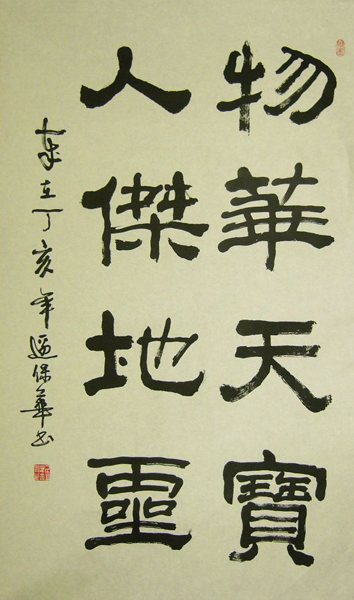 物華天寶
人傑地霊
歲在丁亥年保華書